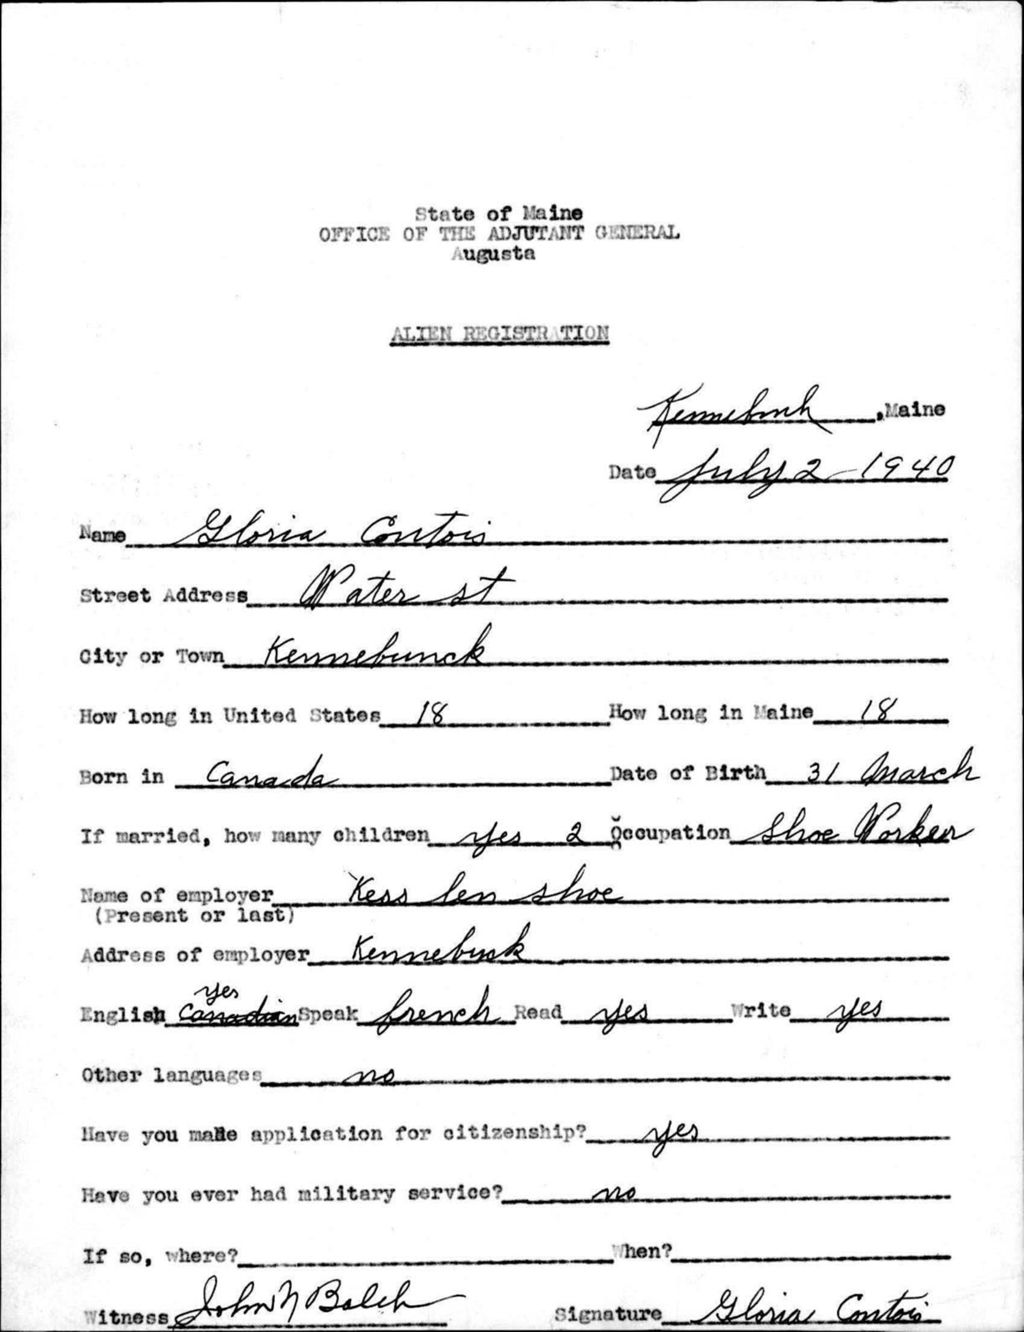 State of Maine
OFFICE OF THE ADJUTANT GENERAL
Augusta
ALIEN REGISTRATION
Kennebunk, Maine
Date July 2 - 1940
Name Gloria Contois
Street Address Water st
City or Town Kennebunck
How long in United States 18 How long in Maine 18
Born in Canada Date of Birth 31 March
If married, how many children yes 2 Occupation Shoe Worker
Name of employer Kess len shoe
(Present or last)
Address of employer Kennebuck
yes
English Canadian Speak french Read yes Write yes
Other languages no
Have you made application for citizenship? yes
Have you ever had military service? no
If so, where? When?
Witness John N Balch Signature Gloria Contois